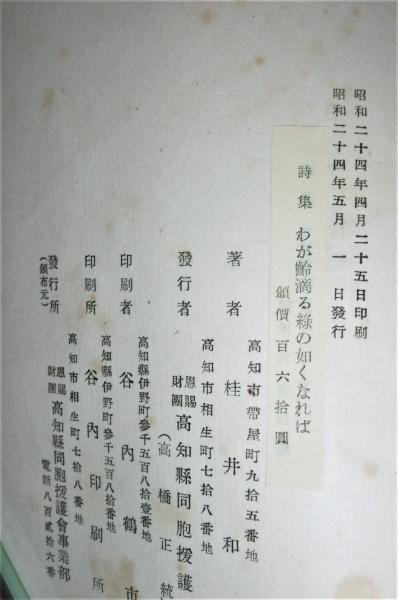 昭和二十四年四月二十五日印刷
昭和二十四年五月一日發行
詩集 わが齡滴る綠の如くなれば
頒價 百六拾圓
高知市帶屋町九拾五番地
著者 桂井和
高知市相生町七拾八番地
發行者 恩賜財團 高知縣同胞援護
(高橋正統
高知縣伊野町參千五百八拾壹番地
印刷者 谷內鶴市
高知縣伊野町參千五百八拾番地
印刷所 谷內印刷所
高知市相生町七拾八番地
發行所 恩賜財團 高知縣同胞援護會事業部
(頒布元) 電話八百貳拾六番